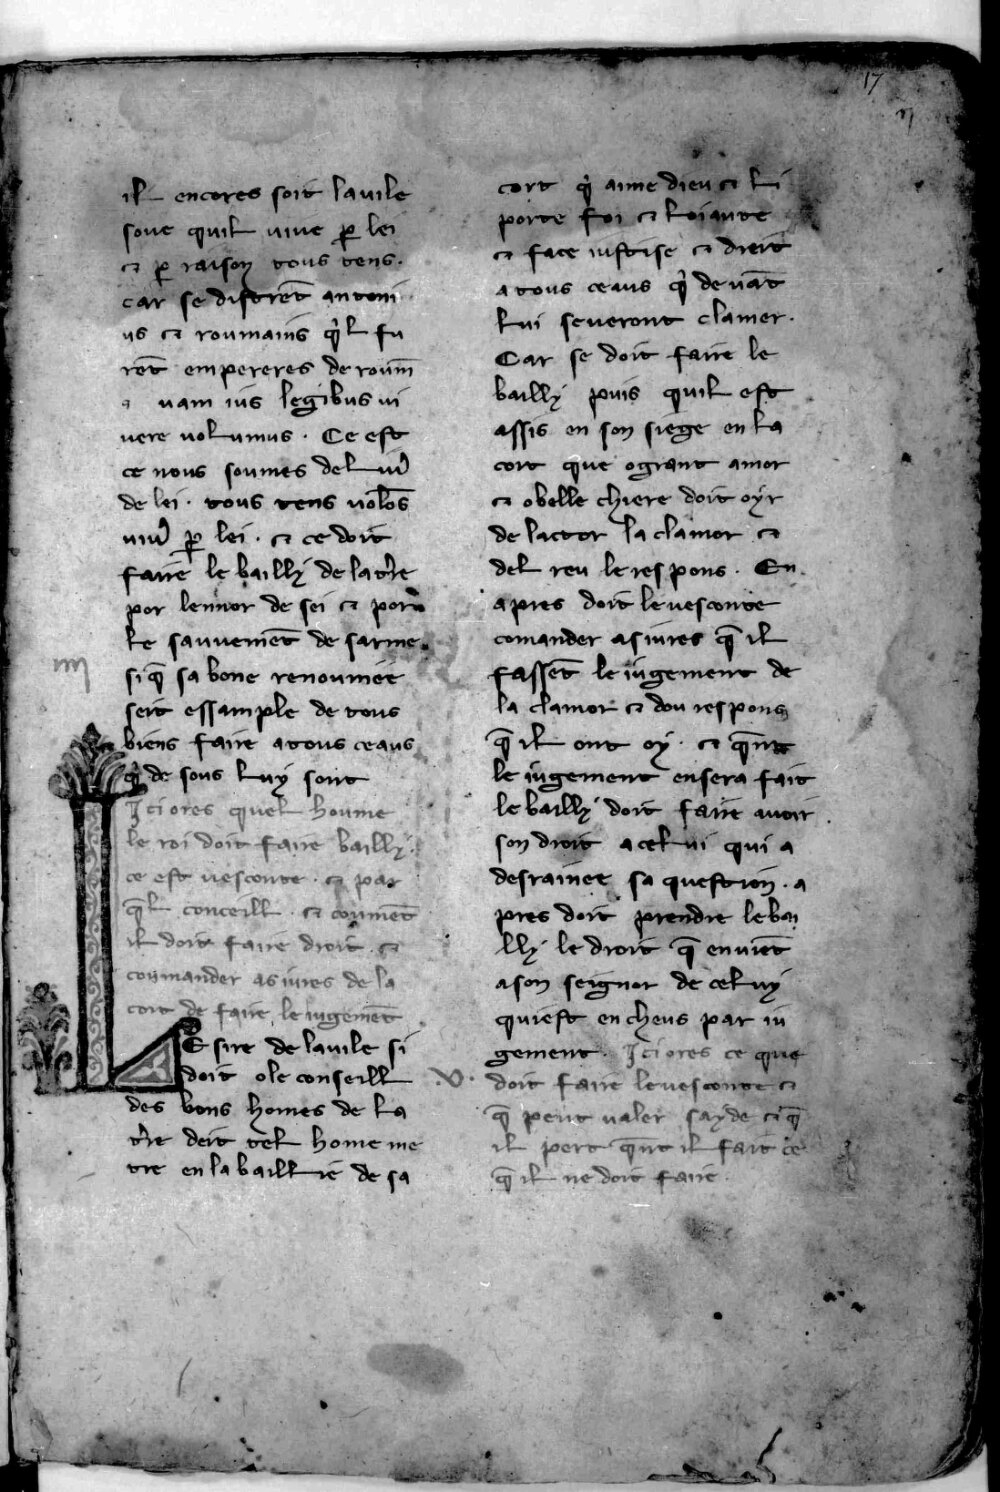 17
il encores soit lavile
sove quil vive ꝑ lei
⁊ ꝑ raison tous tens.
car se distrēt antoni
us ⁊ roumains q̉l fu
rēt empereres de roum̄
⁊ nam ius legibus vi
vere volumus . Ce est
ce nous soumes del viv̉
de lei . tous tens volōs
viv̉ ꝑ lei . ⁊ ce doit
faire le bailly de la tr̉e
por lennor de sei ⁊ por
le sauvemēt de sarme.
si q̄ sa bone renoumee
seit essample de tous
biens faire atous ceaus
q̉ de sous luy sont
Ici ores quel houme
le roi doit faire bailly.
ce est vesconte . ⁊ par
q̄l conceill . ⁊ coumēt
il doit faire droit . ⁊
coumander as iures de la
cort de faire le iugemēt
Le sire de lavile si
doit o le conseill
des bons homes de la
tr̉e deit tel home me
tre en la baillie de sa
cort q̉ aime dieu ⁊ li
porte foi ⁊ loiaute
⁊ face iustise ⁊ dreit
atous ceaus q̉ devāt
lui se veront clamer.
Car se doit faire le
bailly puis quil est
assis en son siege en la
cort que o grant amor
⁊ o belle chiere doit oyr
de lactor la clamor ⁊
del reu le respons . En
apres doit le vesconte
comander as iures q̄ il
fassēt le iugement de
la clamor ⁊ dou respons
q̄ il ont oy . ⁊ q̄nt
le iugement en sera fait
le bailly doit faire avoir
son droit a celui qui a
desrainee sa question . a
pres doit prendre le bai
lly le droit q̄ en viēt
a son seignor de celuy
qui est encheus par iu
gement . Ici ores ce que
.v. doit faire le vesconte ⁊
q̄ peut valer sayde ⁊ q̄
il pert q̄nt il fait ce
q̄ il ne doit faire .